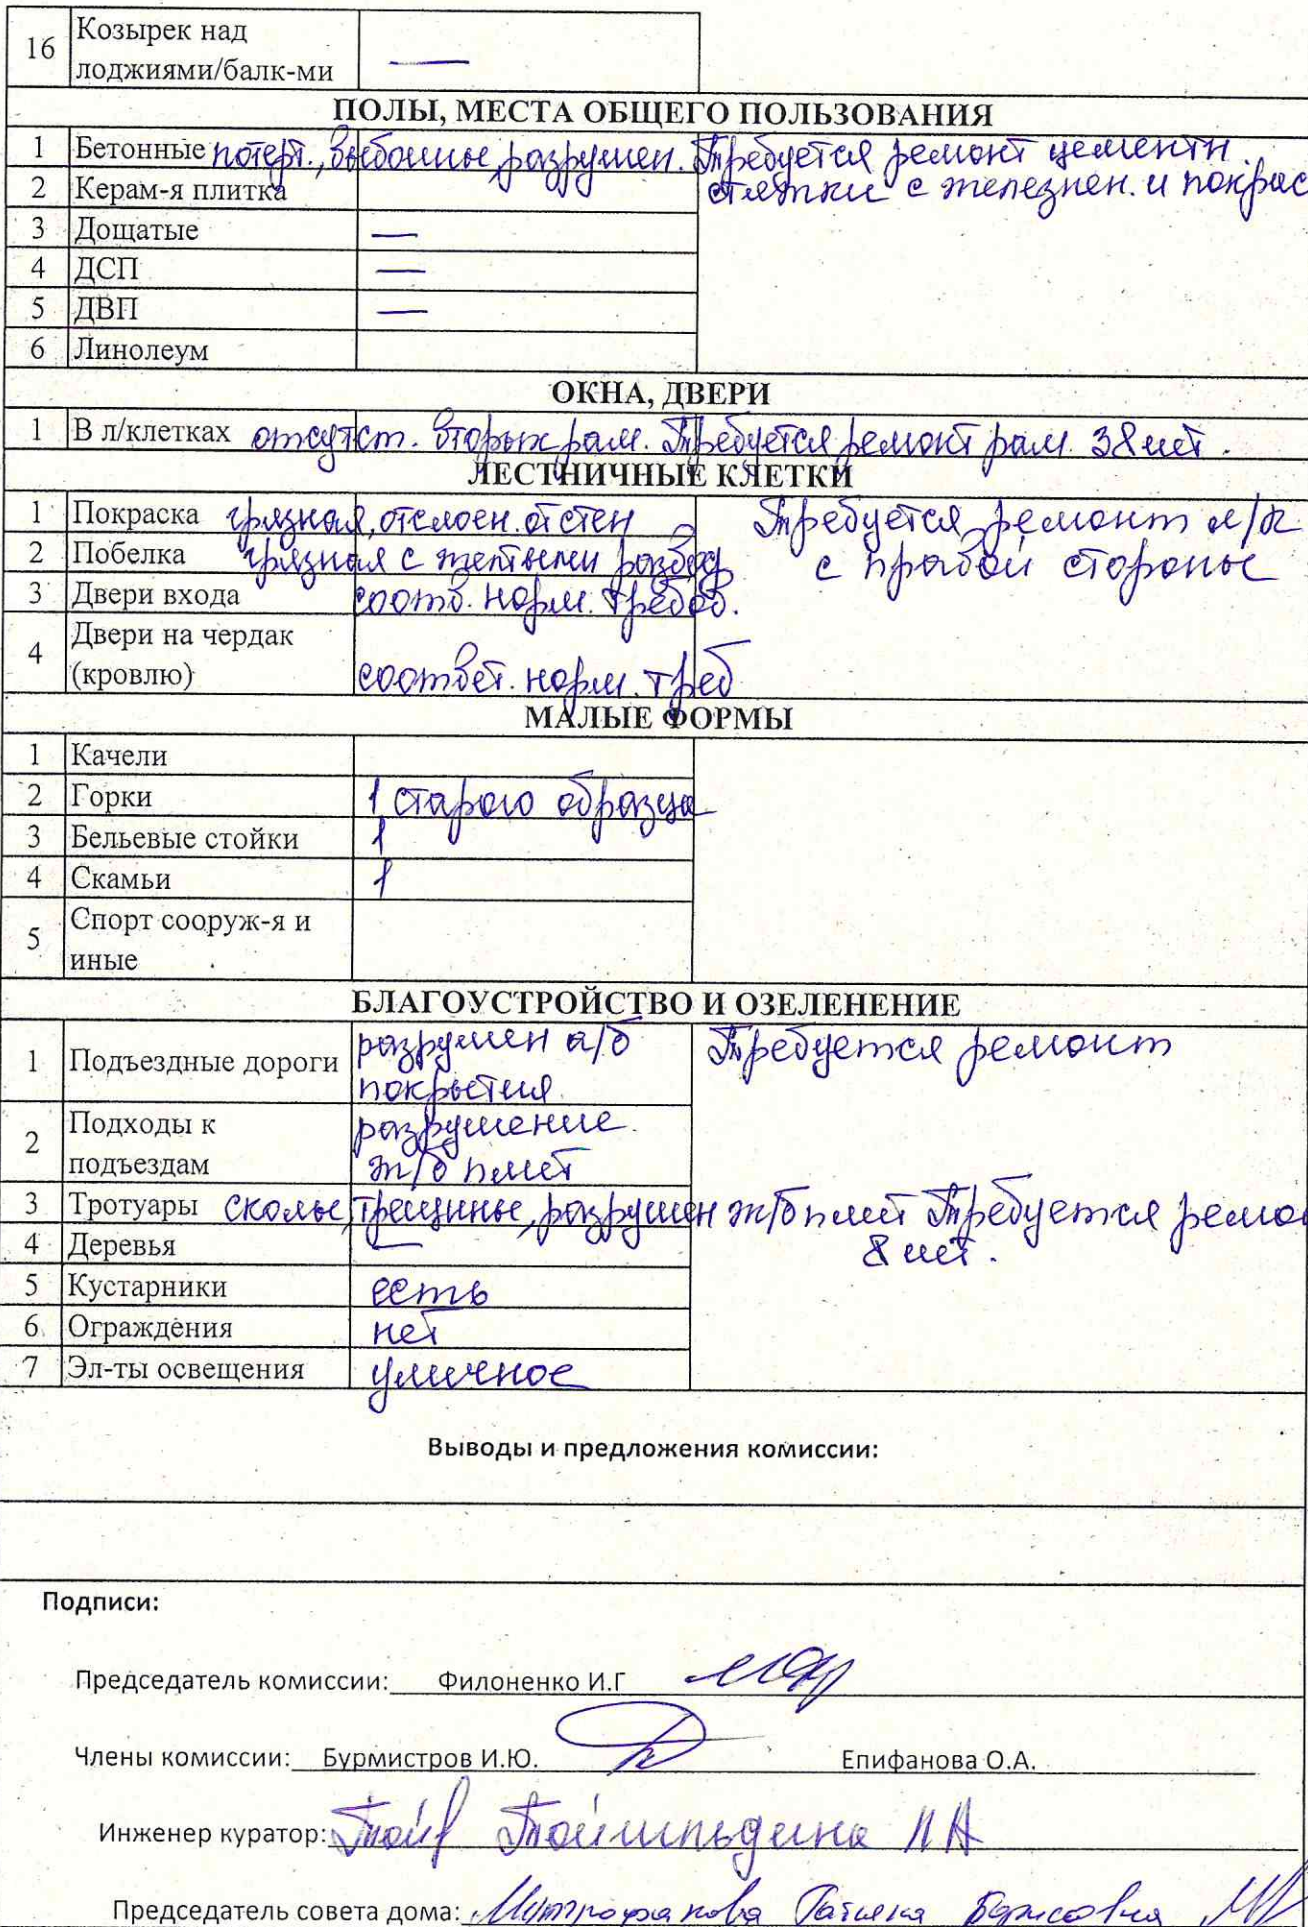 16 Козырек над
лоджиями/балк-ми —
ПОЛЫ, МЕСТА ОБЩЕГО ПОЛЬЗОВАНИЯ
1 Бетонные потерт., выбоины, разрушен. Требуется ремонт цементн.
2 Керам-я плитка стяжки с железнен. и покрас
3 Дощатые —
4 ДСП —
5 ДВП —
6 Линолеум
ОКНА, ДВЕРИ
1 В л/клетках отсутст. вторых рам. Требуется ремонт рам. 38 шт.
ЛЕСТНИЧНЫЕ КЛЕТКИ
1 Покраска грязная, отслоен. от стен Требуется ремонт л/к
2 Побелка грязная с желтыми развод с правой стороны
3 Двери входа соотв. норм. требов.
4 Двери на чердак
(кровлю) соответ. норм. треб
МАЛЫЕ ФОРМЫ
1 Качели
2 Горки 1 старого образца
3 Бельевые стойки 1
4 Скамьи 1
5 Спорт сооруж-я и
иные
БЛАГОУСТРОЙСТВО И ОЗЕЛЕНЕНИЕ
1 Подъездные дороги разрушен а/б Требуется ремонт
покрытия
2 Подходы к разрушение
подъездам ж/б плит
3 Тротуары сколы, трещины, разрушен ж/б плит Требуется ремо
4 Деревья — 8 шт.
5 Кустарники есть
6 Ограждения нет
7 Эл-ты освещения уличное
Выводы и предложения комиссии:
Подписи:
Председатель комиссии: Филоненко И.Г
Члены комиссии: Бурмистров И.Ю. Епифанова О.А.
Инженер куратор:
Председатель совета дома: Митрофанова Татьяна Борисовна